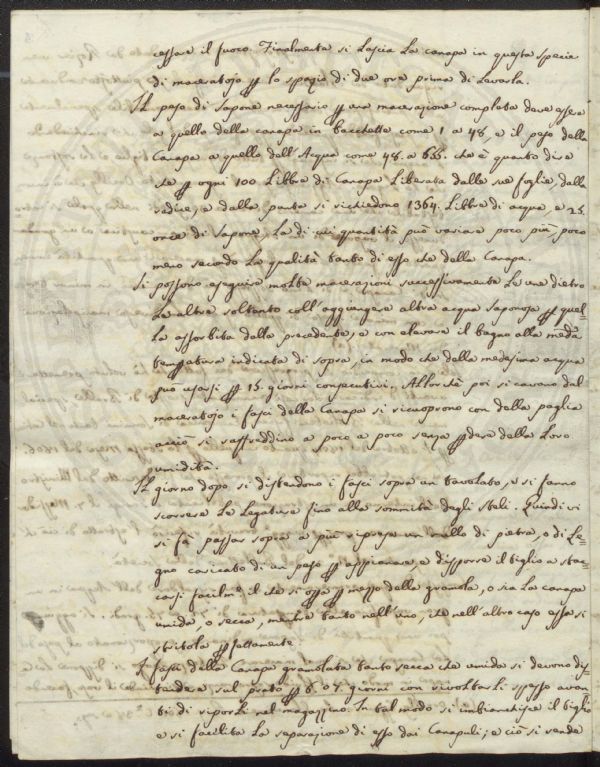 cessare il fuoco. Finalmente si lascia la canapa in questa specie
di maceratojo per lo spazio di due ore prima di levarla.
Il peso di sapone necessario per una macerazione completa deve essere
a quello della canapa in bacchette come 1 a 48, e il peso della
Canapa a quello dell'Acqua come 48. a 655. che è quanto dire
che per ogni 100 Libbre di Canapa liberata dalle sue foglie, dalla
radice, e dalla punta si richiedono 1364. Libbre di acqua, e 25.
oncie di Sapone, la di cui quantità può variare poco più, poco
meno secondo la qualità tanto di esso che della Canapa.
Si possono eseguire molte macerazioni successivamente le une dietro
le altre soltanto coll'aggiungere altra acqua saponosa per quel-
la assorbita dalla precedente, e con elevare il bagno alla meda
temperatura indicata di sopra, in modo che della medesima acqua
può usarsi per 15. giorni consecutivi. Allorchè poi si cavano dal
maceratojo i fasci della Canapa si ricuoprono con della paglia
acciò si raffreddino a poco a poco senza perdere della loro
umidità.
Il giorno dopo si distendono i fasci sopra un tavolato, e si fanno
scorrere le legature fino alla sommità degli steli. Quindi vi
si fà passar sopra a più riprese un rullo di pietra, o di le-
gno caricato di un peso per appianare, e disporre il tiglio a stac-
carsi facilme il che si opera per mezzo della gramola, o sia la canapa
umida, o secca, mentre tanto nell'uno, che nell'altro caso essa si
stritola perfettamente.
I fasci della Canapa gramolata tanto secca che umida si devono di-
stendere sul prato per 6. o 7. giorni con rivoltarli spesso avan-
ti di riporli nel magazzino. In tal modo si imbianchisce il tiglio
e si facilita la separazione di esso dai Canapuli; e ciò si rende